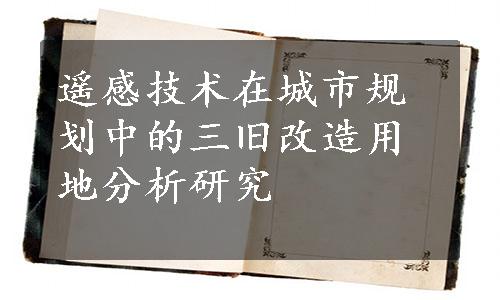 遥感技术在城市规
划中的三旧改造用
地分析研究